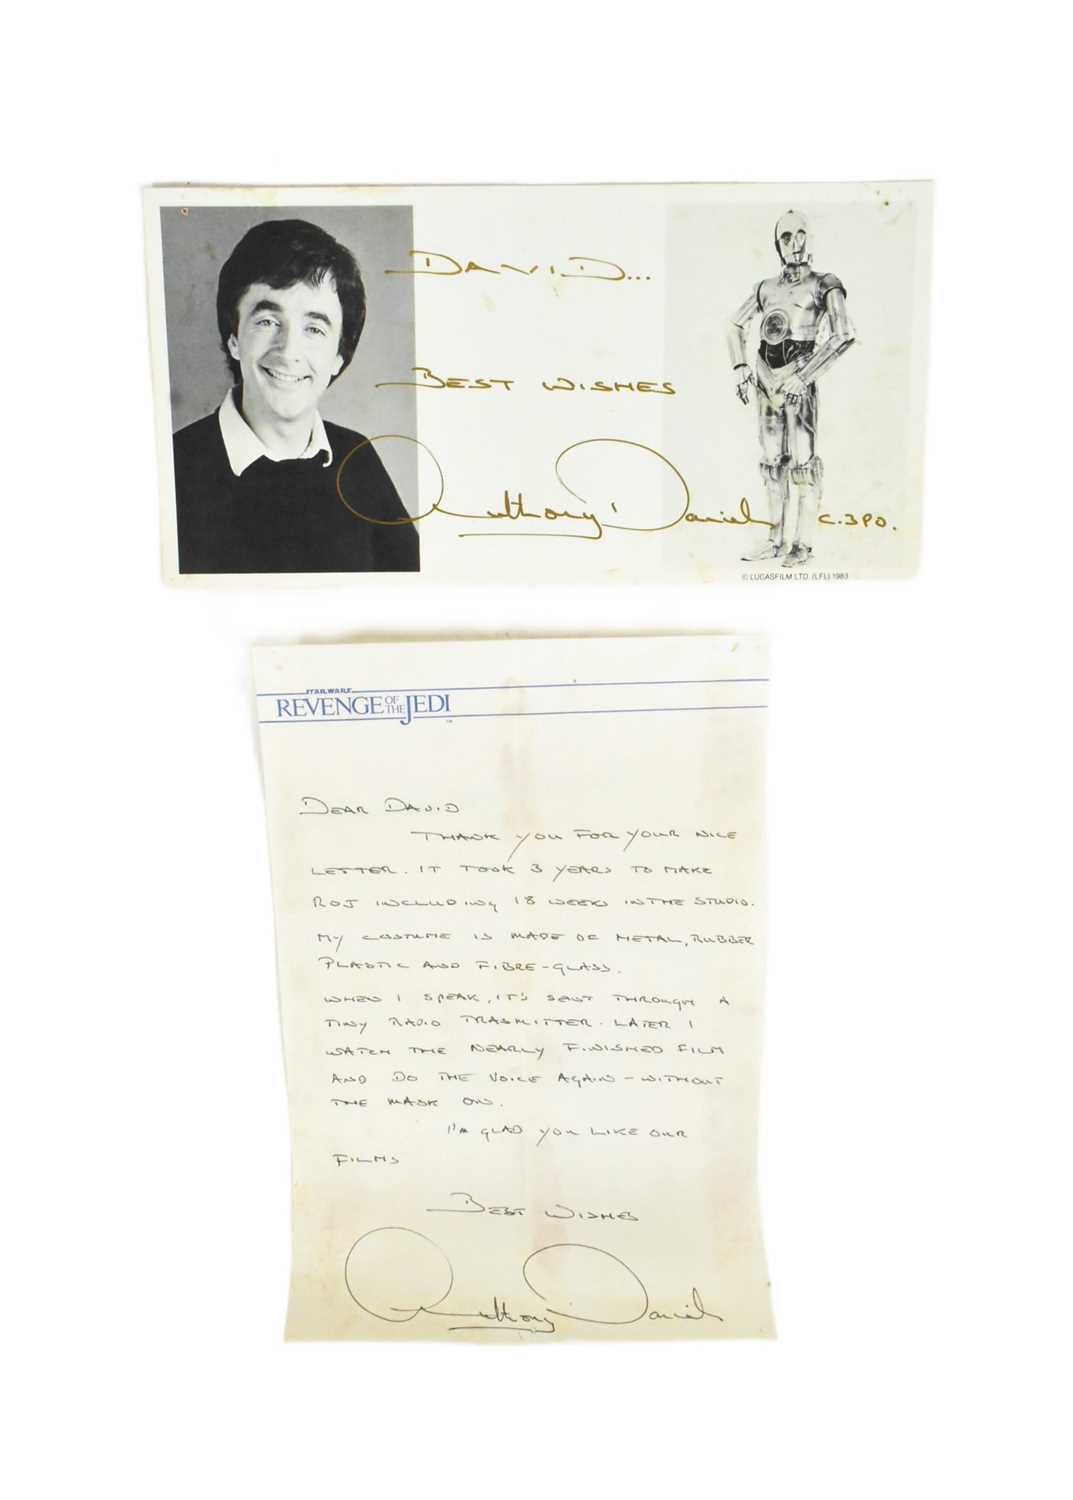 DAVID...
BEST WISHES
Anthony Daniels C.3PO.
© LUCASFILM LTD. (LFL) 1983
STAR WARS
REVENGE OF THE JEDI ™
DEAR DAVID
THANK YOU FOR YOUR NICE
LETTER. IT TOOK 3 YEARS TO MAKE
ROJ INCLUDING 18 WEEKS IN THE STUDIO.
MY COSTUME IS MADE OF METAL, RUBBER
PLASTIC AND FIBRE-GLASS.
WHEN I SPEAK, IT'S SENT THROUGH A
TINY RADIO TRASMITTER. LATER I
WATCH THE NEARLY FINISHED FILM
AND DO THE VOICE AGAIN - WITHOUT
THE MASK ON.
I'M GLAD YOU LIKE OUR
FILMS
BEST WISHES
Anthony Daniels